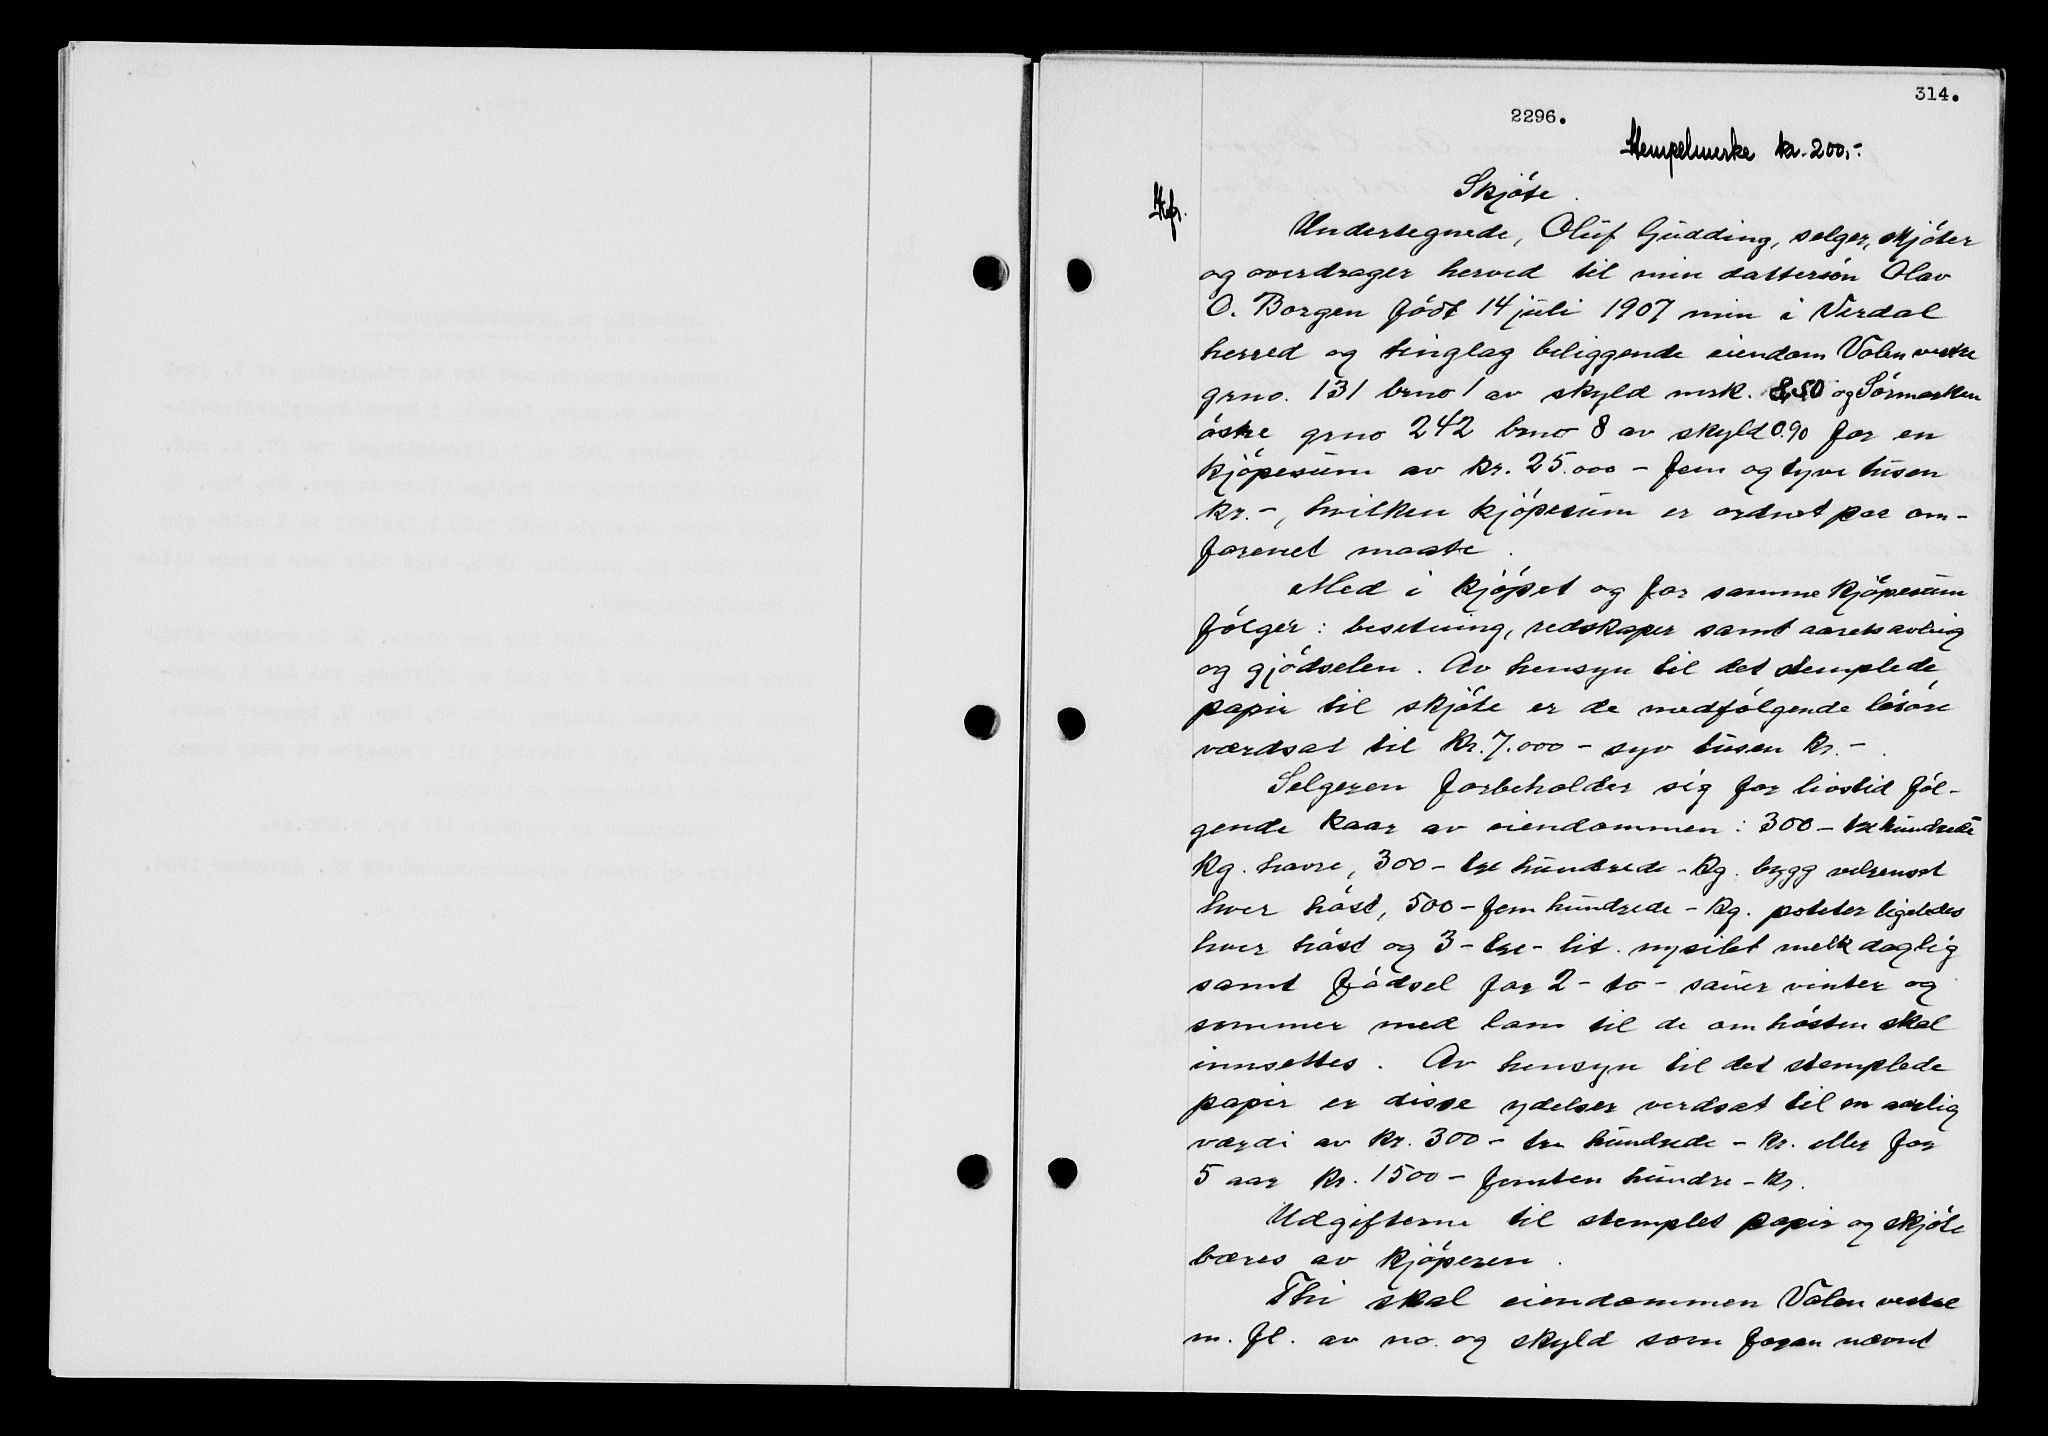 314.
2296.
Stempelmerke kr. 200,-.
Skjöte.
Undertegnede, Oluf Gudding, selger, skjöter
og overdrager herved til min dattersön Olav
O. Borgen födt 14 juli 1907 min i Verdal
herred og tinglag beliggende eiendom Volen vestre
grno. 131 brno 1 av skyld mrk. 8,50 og Sörmarken
östre grno 242 brno 8 av skyld 0.90 for en
kjöpesum av kr. 25.000 - fem og tyve tusen
kr. -, hvilken kjöpesum er ordnet paa om-
forenet maate.
Med i kjöpet og for samme kjöpesum
fölger: besetning, redskaper samt aarets avling
og gjödselen. Av hensyn til det stemplede
papir til skjöte er de medfölgende lösöre
værdsat til Kr. 7.000 - syv tusen kr. -.
Selgeren forbeholder sig for livstid föl-
gende kaar av eiendommen: 300 - tre hundrede
kg. havre, 300 - tre hundrede - kg. bygg velrenset
hver höst, 500 - fem hundrede - kg. poteter ligeledes
hver höst og 3 - tre - lit. nysilet melk daglig
samt födsel for 2 - to - sauer vinter og
sommer med lam til de om hösten skal
innsettes. Av hensyn til det stemplede
papir er disse ydelser verdsat til en aarlig
værdi av kr. 300 - tre hundrede - kr. eller for
5 aar kr. 1500 - femten hundre - kr.
Utgifterne til stemplet papir og skjöte
bæres av kjöperen.
Thi skal eiendommen Volen vestre
m. fl. av no. og skyld som foran nævnt